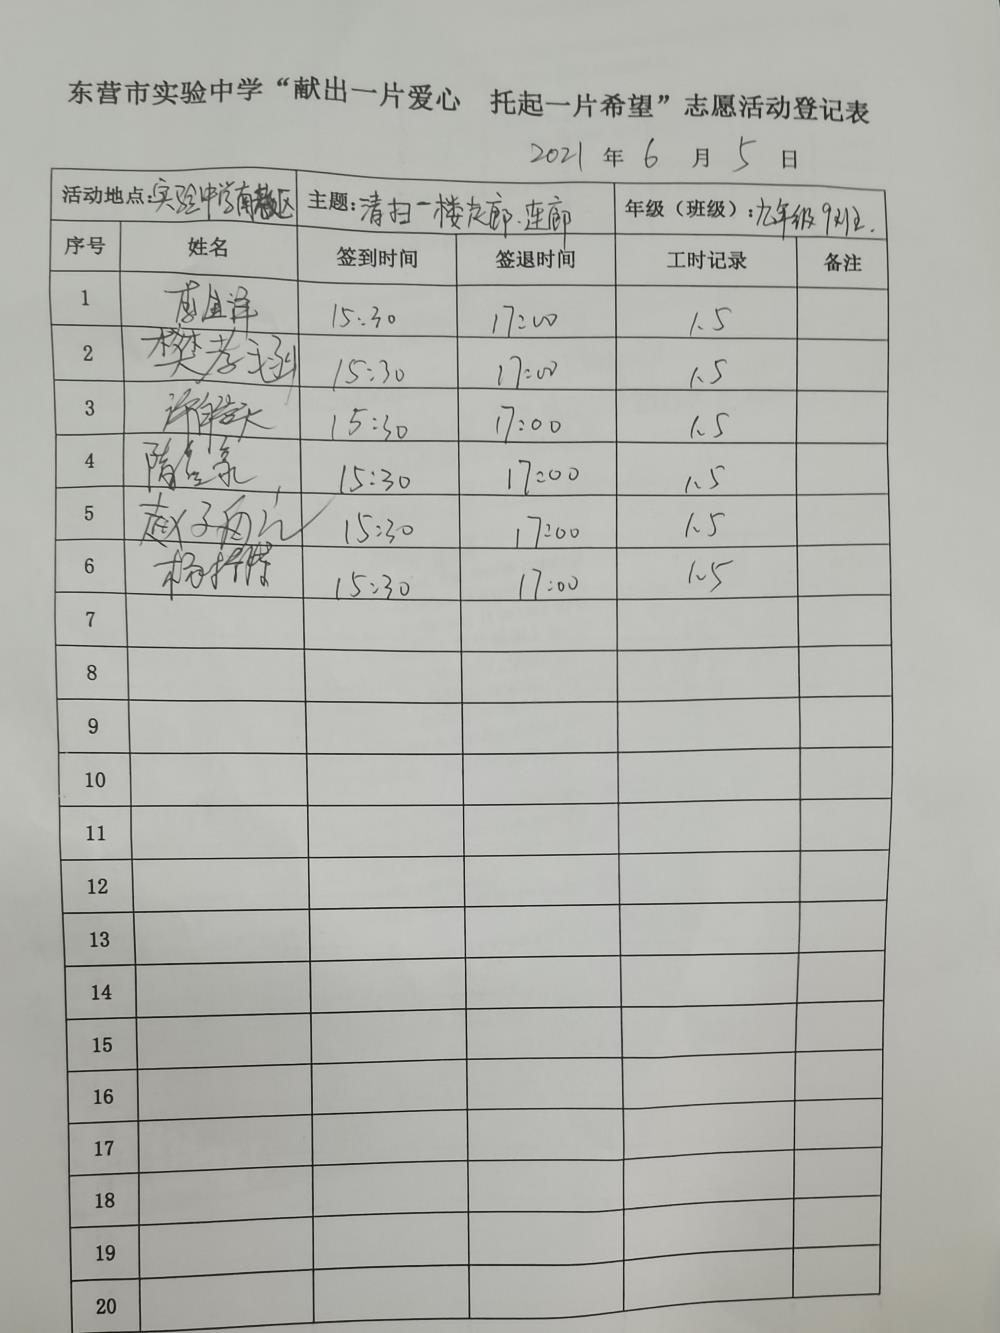 东营市实验中学“献出一片爱心 托起一片希望”志愿活动登记表
2021 年 6 月 5 日
活动地点:实验中学南校区 主题:清扫一楼走廊.连廊 年级（班级）:九年级9班.
序号 姓名 签到时间 签退时间 工时记录 备注
1 15:30 17:00 1.5
2 樊孝涵 15:30 17:00 1.5
3 15:30 17:00 1.5
4 15:30 17:00 1.5
5 赵子 15:30 17:00 1.5
6 杨 15:30 17:00 1.5
7
8
9
10
11
12
13
14
15
16
17
18
19
20